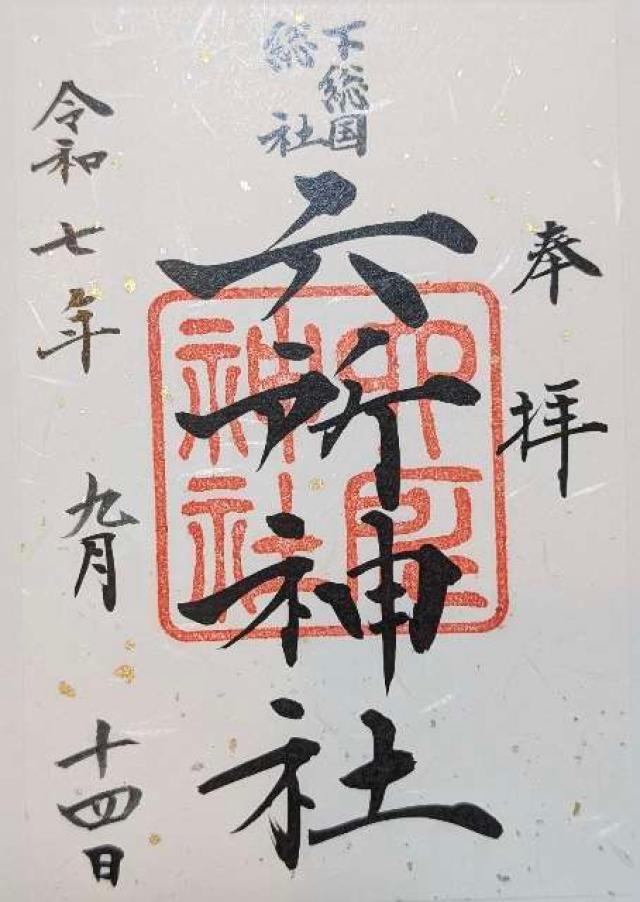 奉拝
下総国
総社
六所神社
六所
神社
令和七年九月十四日